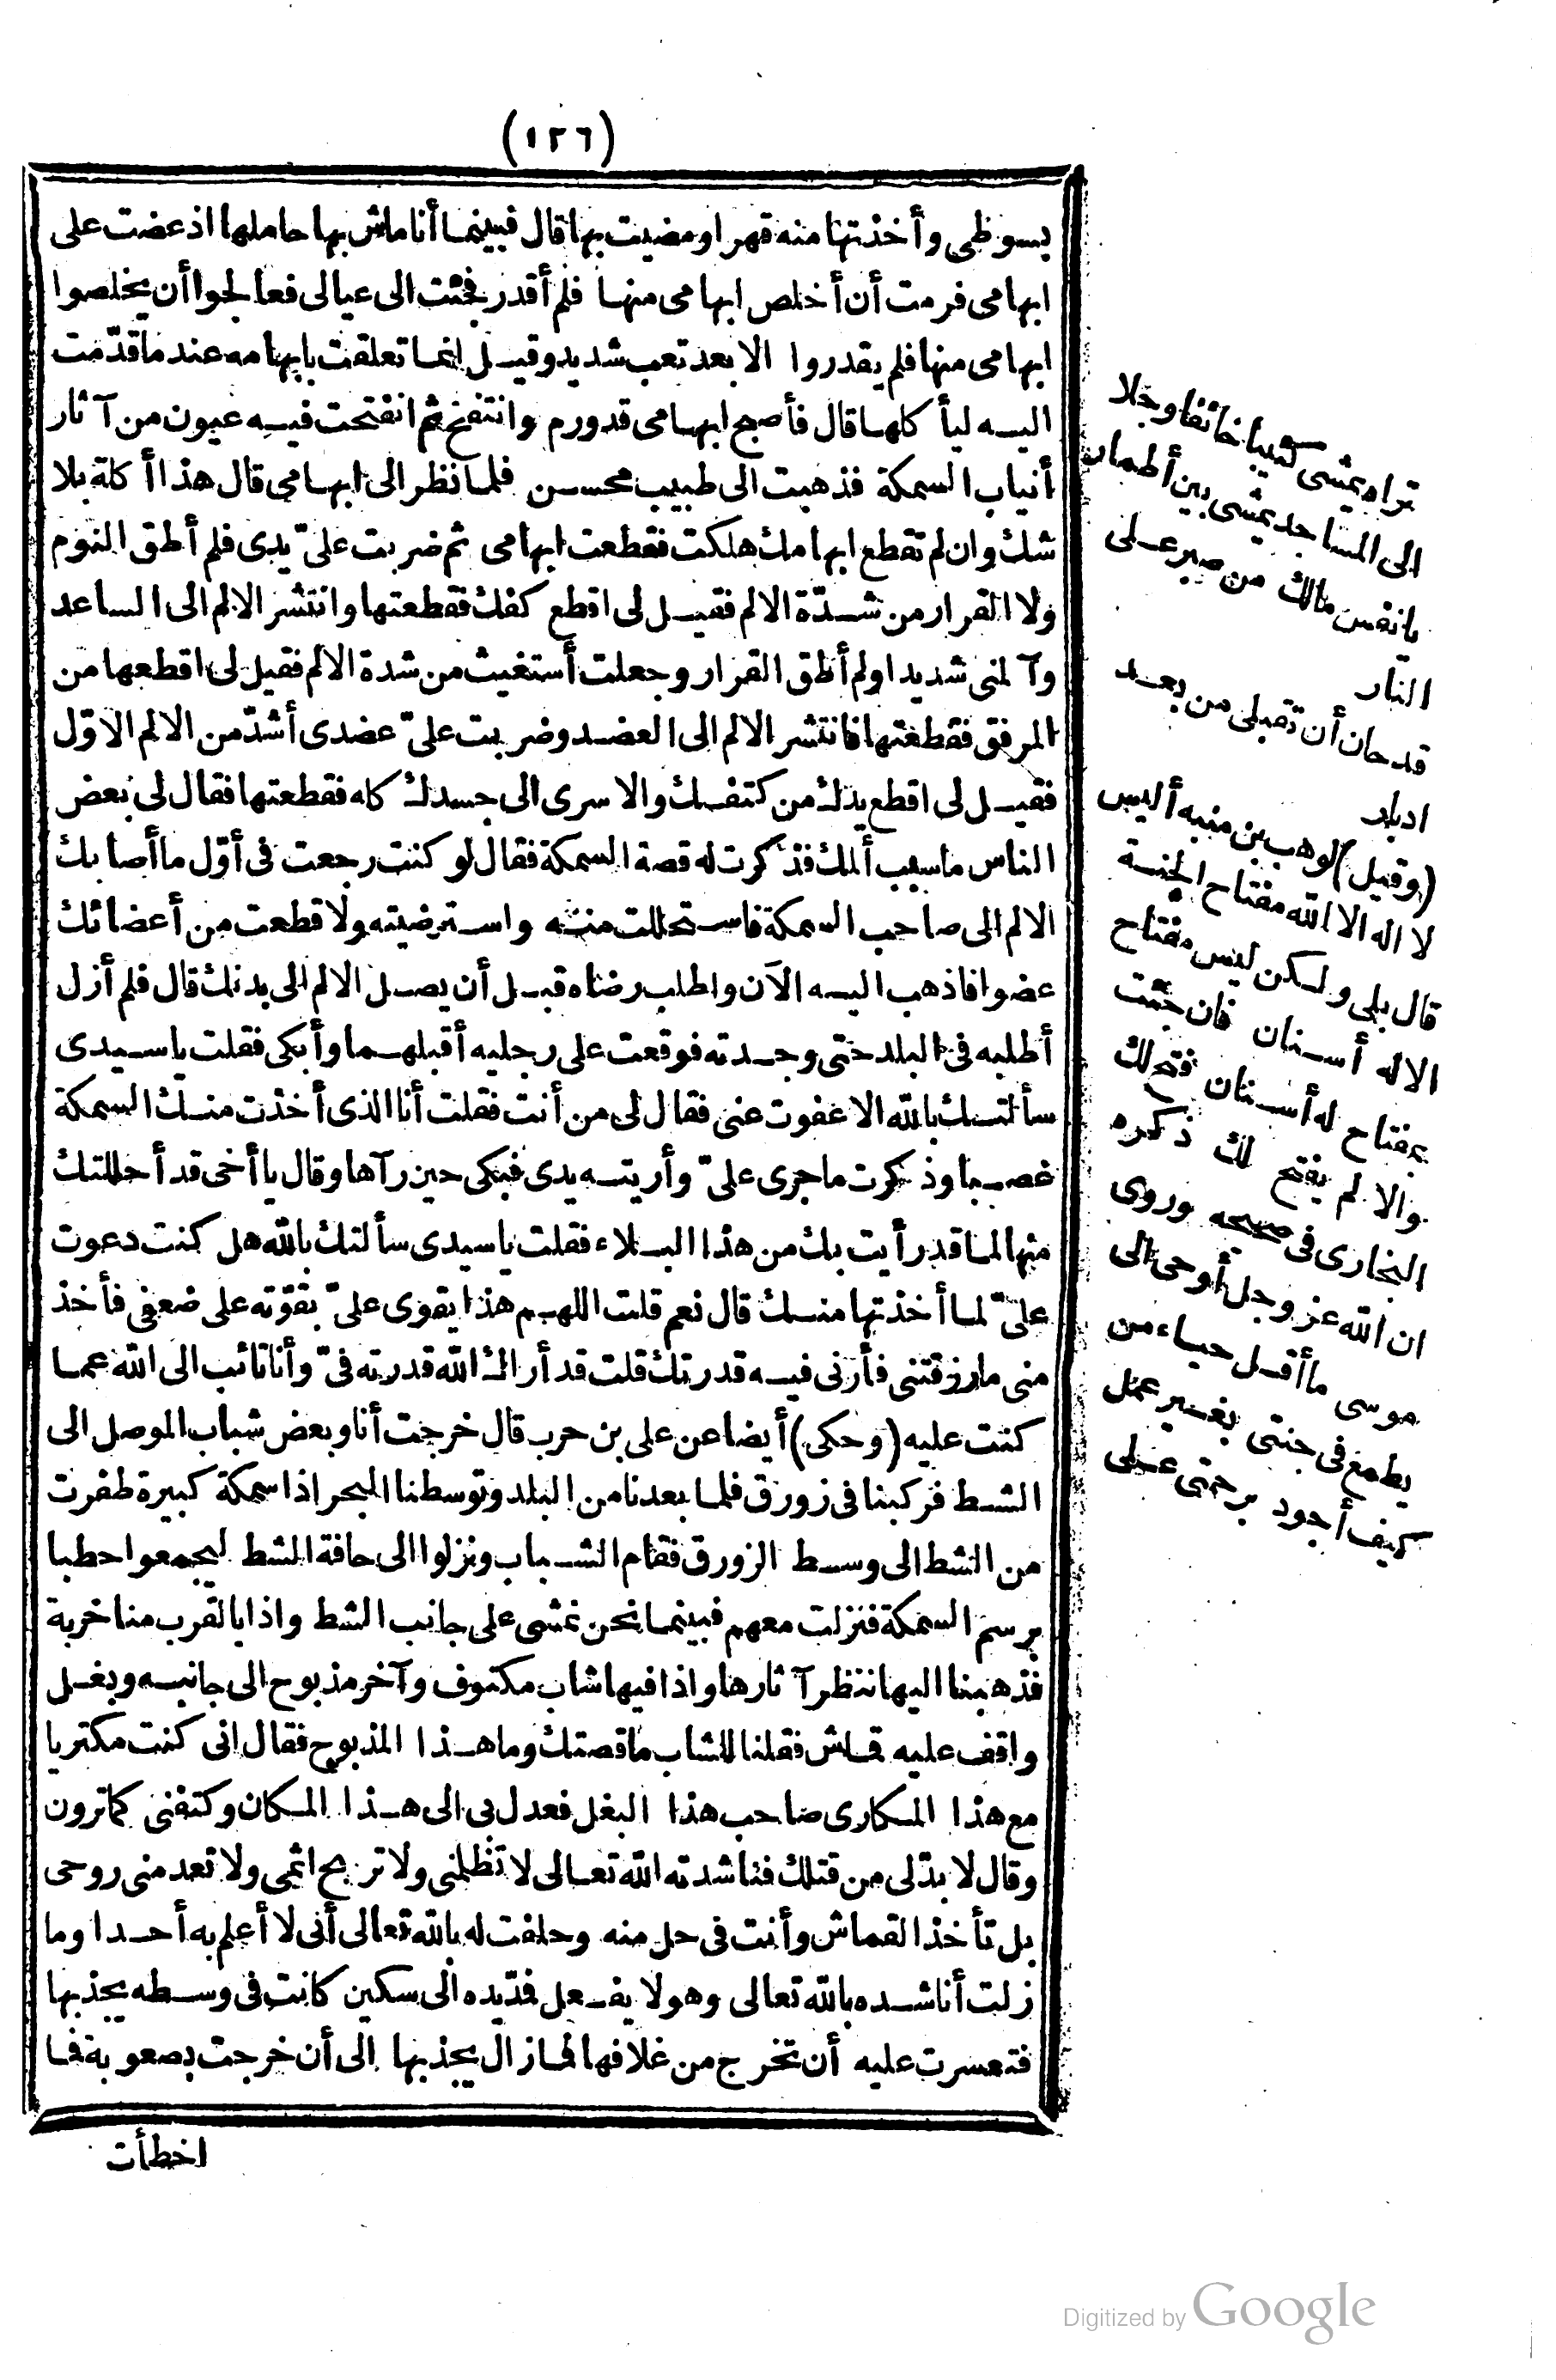 (١٢٦)
بسوطى وأخذتها منه قهرا ومضيت بها قال فبينما أنا ماش بها حاملها اذ عضت على
ابهامى فرمت أن أخلص ابهامى منها فلم أقدر فجئت الى عيالى فعالجوا أن يخلصوا
ابهامى منها فلم يقدروا الا بعد تعب شديد وقيل انما تعلقت بابهامه عند ما قدّمت
اليه ليأكلها قال فأصبح ابهامى قد ورم وانتفخ ثم انفتحت فيه عيون من آثار
أنياب السمكة فذهبت الى طبيب محسن فلما نظر الى ابهامى قال هذا أكلة بلا
شك وان لم تقطع ابهامك هلكت فقطعت ابهامى ثم ضربت علىّ يدى فلم أطق النوم
ولا القرار من شدّة الالم فقيل لى اقطع كفك فقطعتها وانتشر الالم الى الساعد
وآلمنى شديدا ولم أطق القرار وجعلت أستغيث من شدة الالم فقيل لى اقطعها من
المرفق فقطعتها فانتشر الالم الى العضد وضربت علىّ عضدى أشدّ من الالم الاوّل
فقيل لى اقطع يدك من كتفك والا سرى الى جسدك كله فقطعتها فقال لى بعض
الناس ما سبب ألمك فذكرت له قصة السمكة فقال لو كنت رجعت فى أوّل ما أصابك
الالم الى صاحب السمكة فاستحللت منه واسترضيته ولا قطعت من أعضائك
عضوا فاذهب اليه الآن واطلب رضاه قبل أن يصل الالم الى بدنك قال فلم أزل
أطلبه فى البلد حتى وجدته فوقعت على رجليه أقبلهما وأبكى فقلت يا سيدى
سألتك بالله الا عفوت عنى فقال لى من أنت فقلت أنا الذى أخذت منك السمكة
غصبا وذكرت ما جرى علىّ وأريته يدى فبكى حين رآها وقال يا أخى قد أحللتك
منها لما قد رأيت بك من هذا البلاء فقلت يا سيدى سألتك بالله هل كنت دعوت
علىّ لما أخذتها منك قال نعم قلت اللهم هذا يقوى علىّ بقوّته على ضعفى فأخذ
منى ما رزقتنى فأرنى فيه قدرتك قلت قد أراك الله قدرته فىّ وأنا تائب الى الله عما
كنت عليه (وحكى) أيضا عن على بن حرب قال خرجت أنا وبعض شباب الموصل الى
الشط فركبنا فى زورق فلما بعدنا من البلد وتوسطنا البحر اذا سمكة كبيرة طفرت
من الشط الى وسط الزورق فقام الشباب ونزلوا الى حافة الشط ليجمعوا حطبا
برسم السمكة فنزلت معهم فبينما نحن نمشى على جانب الشط واذا بالقرب منا خربة
فذهبنا اليها ننظر آثارها واذا فيها شاب مكتوف وآخر مذبوح الى جانبه وبغل
واقف عليه قماش فقلنا للشاب ما قصتك وما هذا المذبوح فقال انى كنت مكتريا
مع هذا المكارى صاحب هذا البغل فعدل بى الى هذا المكان وكتفنى كما ترون
وقال لا بدّ لى من قتلك فناشدته الله تعالى لا تظلمنى ولا تربح اثمى ولا تعدمنى روحى
بل تأخذ القماش وأنت فى حل منه وحلفت له بالله تعالى أنى لا أعلم به أحدا وما
زلت أناشده بالله تعالى وهو لا يفعل فمدّ يده الى سكين كانت فى وسطه يجذبها
فتعسرت عليه أن تخرج من غلافها فما زال يجذبها الى أن خرجت بصعوبة فما
اخطأت
تراه يمشى كئيبا خائفا وجلا
الى المساجد يمشى بين أطمار
يا نفس مالك من صبر على
النار
قد حان أن تقبلى من بعد
ادبار
(وقيل) لوهب بن منبه أليس
لا اله الا الله مفتاح الجنة
قال بلى ولكن ليس مفتاح
الا له أسنان فان جئت
بمفتاح له أسنان فتح لك
والا لم يفتح لك ذكره
البخارى فى صحيحه وروى
ان الله عز وجل أوحى الى
موسى ما أقل حياء من
يطمع فى جنتى بغير عمل
كيف أجود برحمتى على
Digitized by Google